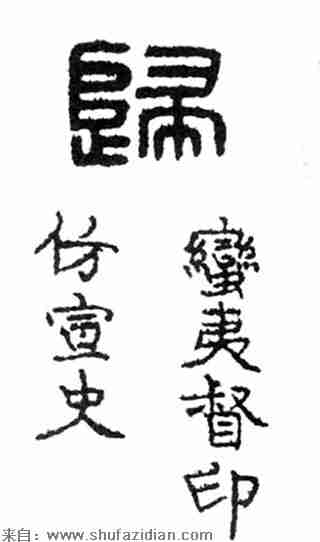 歸
蠻夷督印
仿宣史
来自：www.shufazidian.com